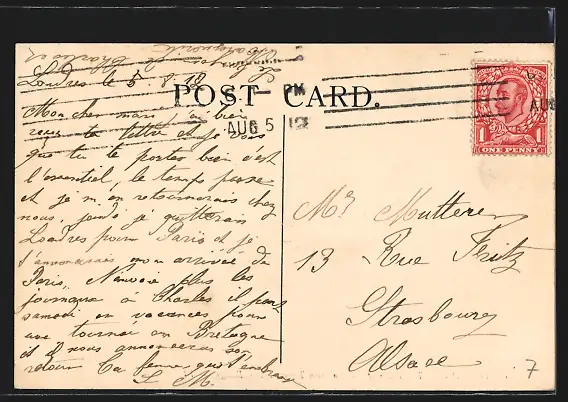 Londres le 5. 8. 12
POST CARD.
PM
AUG 5 12
AUG
ONE PENNY
1 1
Mon cher mari j'ai bien
reçu ta lettre et je vois
que tu te portes bien c'est
l'essentiel, le temps passe
et je m'en retournerais chez
nous, jeudi je quitterais
Londres pour Paris et je
t'annoncerais mon arrivée de
Paris. N'envoie plus les
journaux à Charles il part
samedi en vacances pour
une tournée en Bretagne
et il nous annoncera son
retour Ta femme qui t'embrasse
L M.
Mr Mutterer
13 Rue Fritz
Strasbourg
Alsace
7